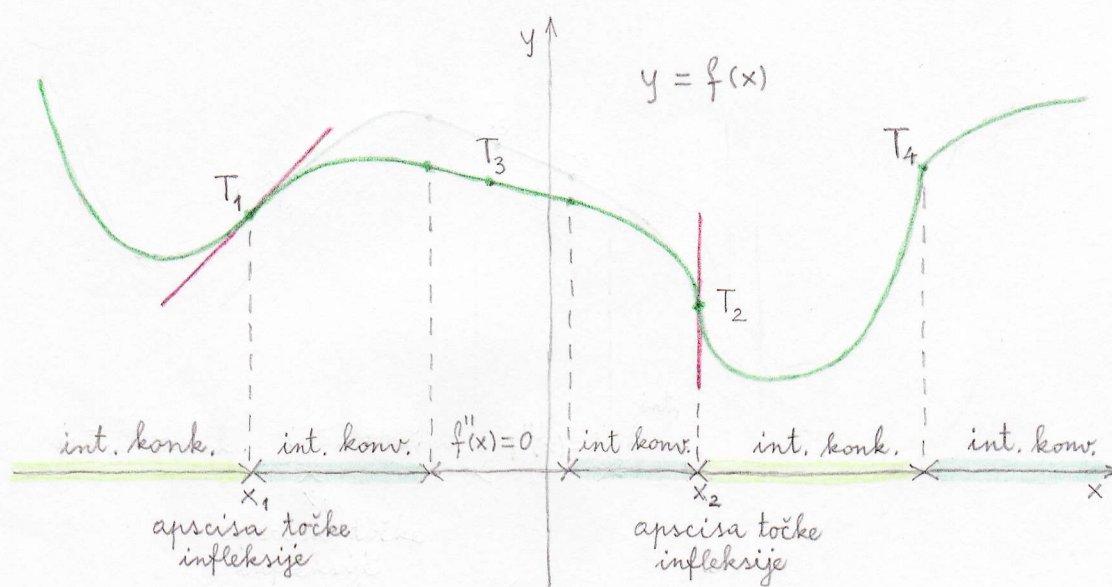 y
y = f(x)
T₁
T₃
T₂
T₄
int. konk.
int. konv.
f''(x)=0
int konv.
int. konk.
int. konv.
x₁
x₂
x
apscisa točke
infleksije
apscisa točke
infleksije